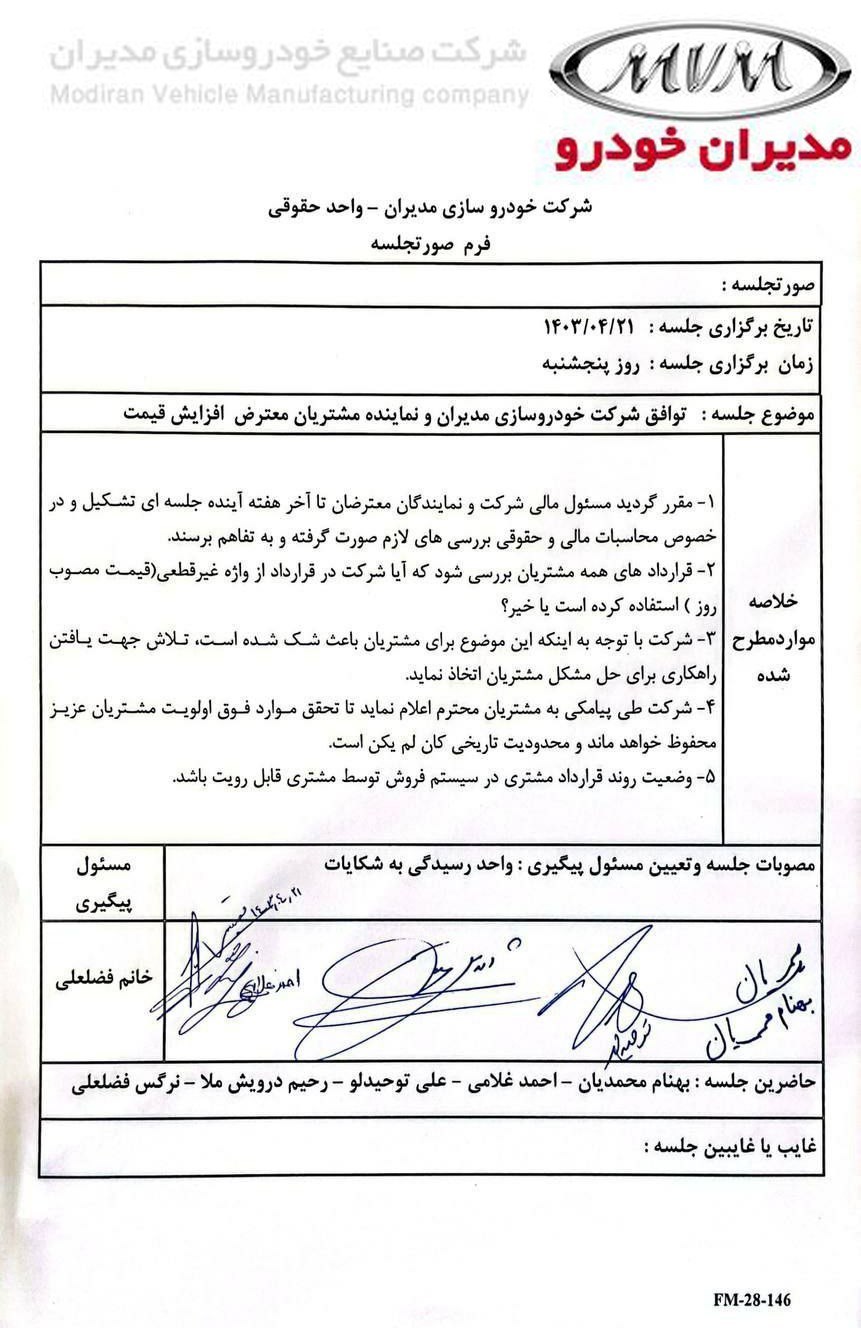 شرکت صنایع خودروسازی مدیران
Modiran Vehicle Manufacturing company
MVM
مدیران خودرو
شرکت خودرو سازی مدیران – واحد حقوقی
فرم صورتجلسه
صورتجلسه :
تاریخ برگزاری جلسه : ۱۴۰۳/۰۴/۲۱
زمان برگزاری جلسه : روز پنجشنبه
موضوع جلسه : توافق شرکت خودروسازی مدیران و نماینده مشتریان معترض افزایش قیمت
خلاصه
مواردمطرح
شده
۱- مقرر گردید مسئول مالی شرکت و نمایندگان معترضان تا آخر هفته آینده جلسه ای تشکیل و در
خصوص محاسبات مالی و حقوقی بررسی های لازم صورت گرفته و به تفاهم برسند.
۲- قرارداد های همه مشتریان بررسی شود که آیا شرکت در قرارداد از واژه غیرقطعی(قیمت مصوب
روز ) استفاده کرده است یا خیر؟
۳- شرکت با توجه به اینکه این موضوع برای مشتریان باعث شک شده است، تلاش جهت یافتن
راهکاری برای حل مشکل مشتریان اتخاذ نماید.
۴- شرکت طی پیامکی به مشتریان محترم اعلام نماید تا تحقق موارد فوق اولویت مشتریان عزیز
محفوظ خواهد ماند و محدودیت تاریخی کان لم یکن است.
۵- وضعیت روند قرارداد مشتری در سیستم فروش توسط مشتری قابل رویت باشد.
مصوبات جلسه وتعیین مسئول پیگیری : واحد رسیدگی به شکایات
مسئول
پیگیری
۱۴۰۳,۴,۲۱
خانم فضلعلی
احمد غلامی
بهنام محمدیان
حاضرین جلسه : بهنام محمدیان – احمد غلامی – علی توحیدلو – رحیم درویش ملا – نرگس فضلعلی
غایب یا غایبین جلسه :
FM-28-146